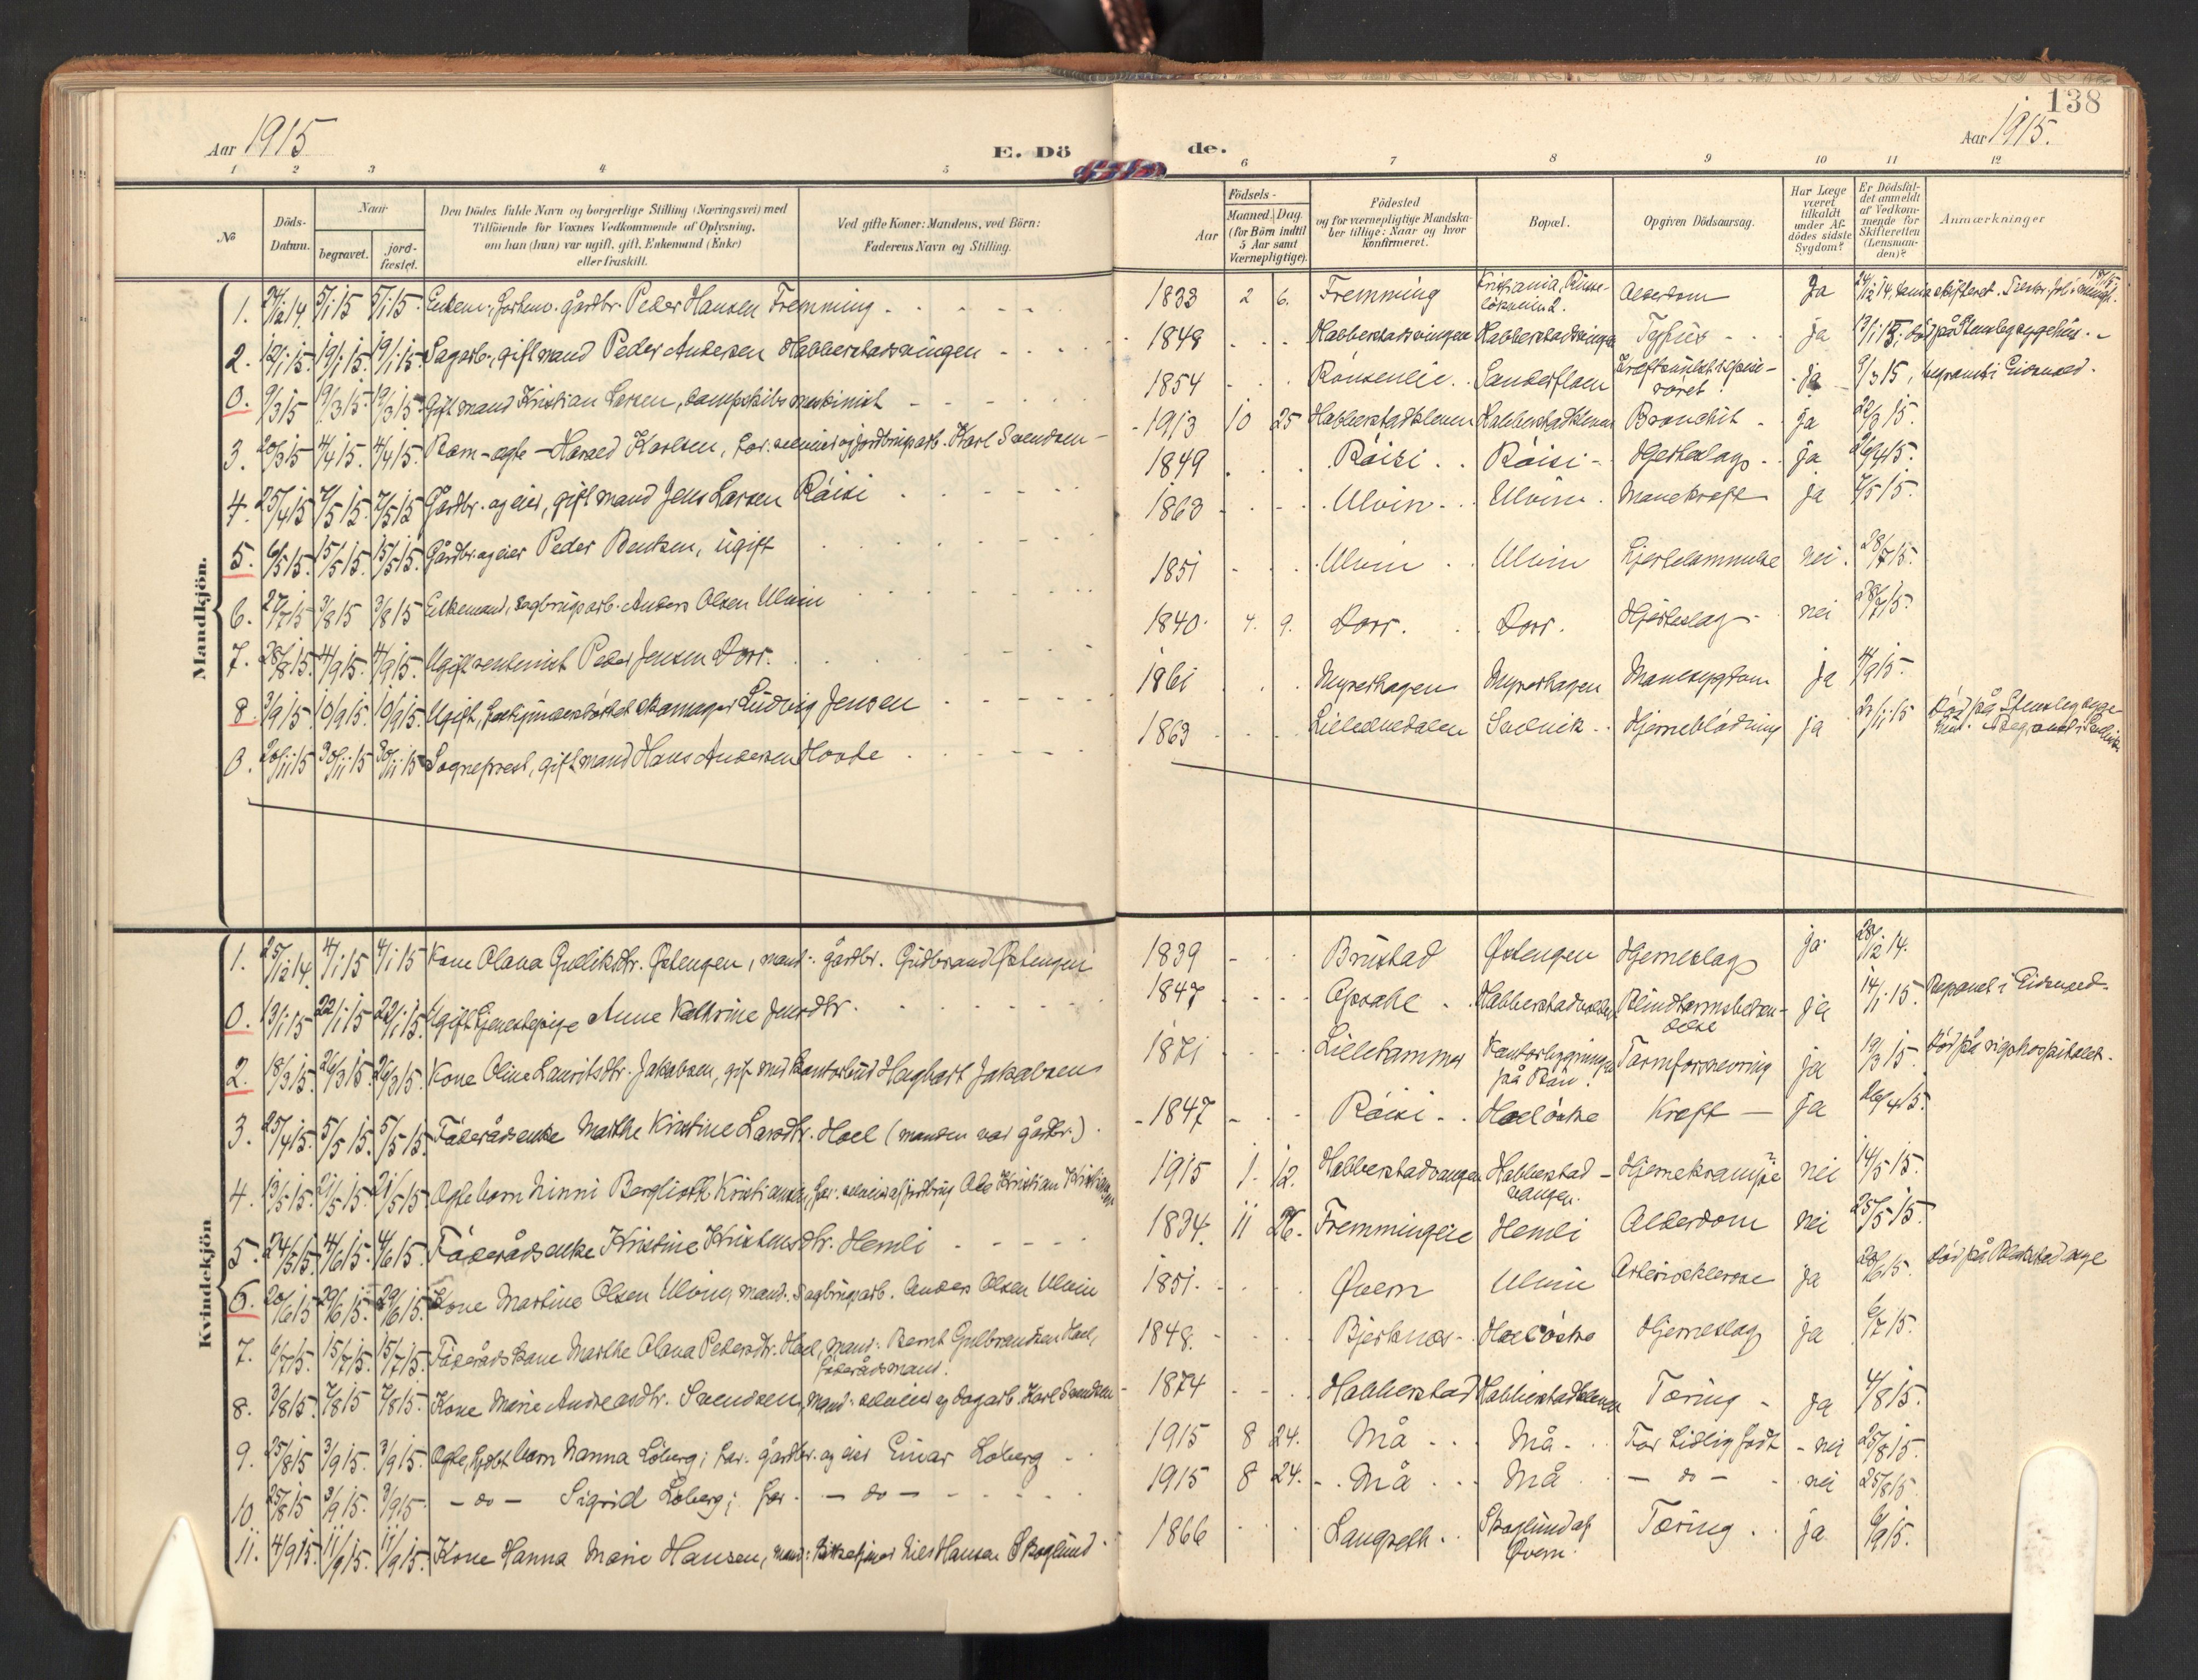 138
Aar 1915
E. Dö
de.
Aar 1915.
1 2 3 4 5 6 7 8 9 10 11 12
No
Döds-Datum.
Naar
begravet.
jord-fæstet.
Den Dödes fulde Navn og borgerlige Stilling (Næringsvei) med
Tilföiende for Voxnes Vedkommende af Oplysning,
om han (hun) var ugift, gift, Enkemand (Enke)
eller fraskilt.
Ved gifte Koner: Mandens, ved Börn:
Faderens Navn og Stilling.
Födsels-
Aar
Maaned. Dag.
(for Börn indtil
5 Aar samt
Værnepligtige).
Födested
og for værnepligtige Mandska-
ber tillige: Naar og hvor
konfirmeret.
Bopæl.
Opgiven Dödsaarsag.
Har Læge
været
tilkaldt
under Af-
dödes sidste
Sygdom?
Er Dödsfal-
det anmeldt
af Vedkom-
mende for
Skifteretten
(Lensman-
den)?
Anmærkninger
Mandkjön.
1. 24/12 14. 5/1 15 5/1 15. Enkem. gårdbr. Peder Hansen Fremming 1833 2 6. Fremming Kristiania Alderdom Ja 24/12 14.
2. 12/1 15. 19/1 15. 19/1 15. Sagarb., gift mand Peder Andersen Habberstadvingen 1848 Habberstadvingen Habberstadvingen Tyfus ja 13/1 15. död på Stensby sygehus.
0. 9/3 15 19/3 15. 19/3 15. Gift mand Kristian Larsen, dampskibsmaskinist 1854 Sanderfloen ja 9/3 15, begravet i Eidsvold.
3. 20/3 15 4/4 15. 4/4 15. Barn - ægte - Harald Karlsen, far: selveier og jordbrugsarb. Karl Svendsen 1913 10 25 Habberstadkleven Habberstadkleven Bronchit ja 22/3 15.
4. 25/4 15 7/5 15. 7/5 15 Gårdbr. og eier, gift mand Jens Larsen Röisi 1849 Röisi Röisi Hjerteslag ja 26/4 15.
5. 6/5 15. 15/5 15. 15/5 15. Gårdbr. og eier Peder Bentsen, ugift 1863 Ulvin Ulvin Mavekræft ja 7/5 15.
6. 27/7 15 3/8 15 3/8 15 Enkemand, sagbrugsarb. Anders Olsen Ulvin 1851 Ulvin Ulvin Hjertelammelse nei. 28/7 15.
7. 28/8 15. 4/9 15. 4/9 15. Ugift rentenist Peder Jensen Dorr. 1840 4. 9. Dorr. Dorr. Hjerteslag nei 28/7 15.
8. 3/9 15. 10/9 15. 10/9 15. Ugift, skomager Ludvig Jensen 1861 Myrerhagen Myrerhagen Mavesygdom ja 4/9 15.
0. 20/11 15 30/11 15 30/11 15 Sogneprest, gift mand Hans Andersen Hovde 1863 Hjerneblödning ja 23/11 15 Död på Stensby syge
Kvindekjön
1. 25/12 14. 4/1 15 4/1 15 Kone Olava Gulliksdtr. Østengen, mand: gårdbr. Gudbrand Østengen 1839 Brustad Østengen Hjerneslag ja 28/12 14.
0. 13/1 15 22/1 15 22/1 15. Ugift tjenestepige Anne Kathrine Jensdtr. 1847 Opsahl Blindtarmsbetæn-delse ja 14/1 15. Begravet i Eidsvold.
2. 18/3 15. 26/3 15 26/3 15. Kone Oline Lauritsdtr. Jakobsen, gift med kontorbud Hagbart Jakobsen 1871 Lillehammer Kontorbygningen på Bön. Tarmforsnevring ja 19/3 15. Död på rigshospitalet.
3. 25/4 15. 5/5 15. 5/5 15. Föderådsenke Marthe Kirstine Larsdtr. Hoel (manden var gårdbr.) 1847 Röisi Hoel östre Kræft ja 26/4 15.
4. 13/5 15. 21/5 15. 21/5 15 Ægte barn Ninni Berglioth Kristiansen, far: Ole Kristian Kristiansen 1915 1. 12. Habberstadvangen Habberstad-vangen. Hjernekrampe nei 14/5 15.
5. 24/5 15. 4/6 15. 4/6 15. Föderådsenke Kristine Kristensdtr. Hemli 1834. 11 26. Fremmingeie Hemli Alderdom nei 25/5 15.
6. 20/6 15 29/6 15. 29/6 15. Kone Martine Olsen Ulvin, mand: Sagbrugsarb. Anders Olsen Ulvin 1851. Øvern Ulvin Arteriosklerose ja 20/6 15. Död på Blakstad asyl
7. 6/7 15. 15/7 15. 15/7 15. Föderådskone Marthe Olava Pedersdtr. Hoel, mand: Bernt Gulbrandsen Hoel, föderådsmand. 1848. Bjerknes Hoel östre Hjerneslag ja 6/7 15.
8. 3/8 15. 7/8 15 7/8 15. Kone Marie Andreasdtr. Svendsen, mand: selveier og dagarb. Karl Svendsen 1874 Habberstad Habberstadkleven Tæring ja 4/8 15.
9. 25/8 15 3/9 15. 3/9 15. Ægte, barn Nanna Löberg; far: gårdbr. og eier Einar Löberg 1915 8 24. Må Må For tidlig födt nei 25/8 15.
10 25/8 15 3/9 15. 3/9 15. - do - Sigrid Löberg; far - do - 1915 8 24. Må Må - do - nei 25/8 15.
11. 4/9 15. 11/9 15. 11/9 15. Kone Hanna Marie Hansen, mand: Nils Hansen Skoglund 1866 Langseth Skoglund af Øvern. Tæring ja 6/9 15.